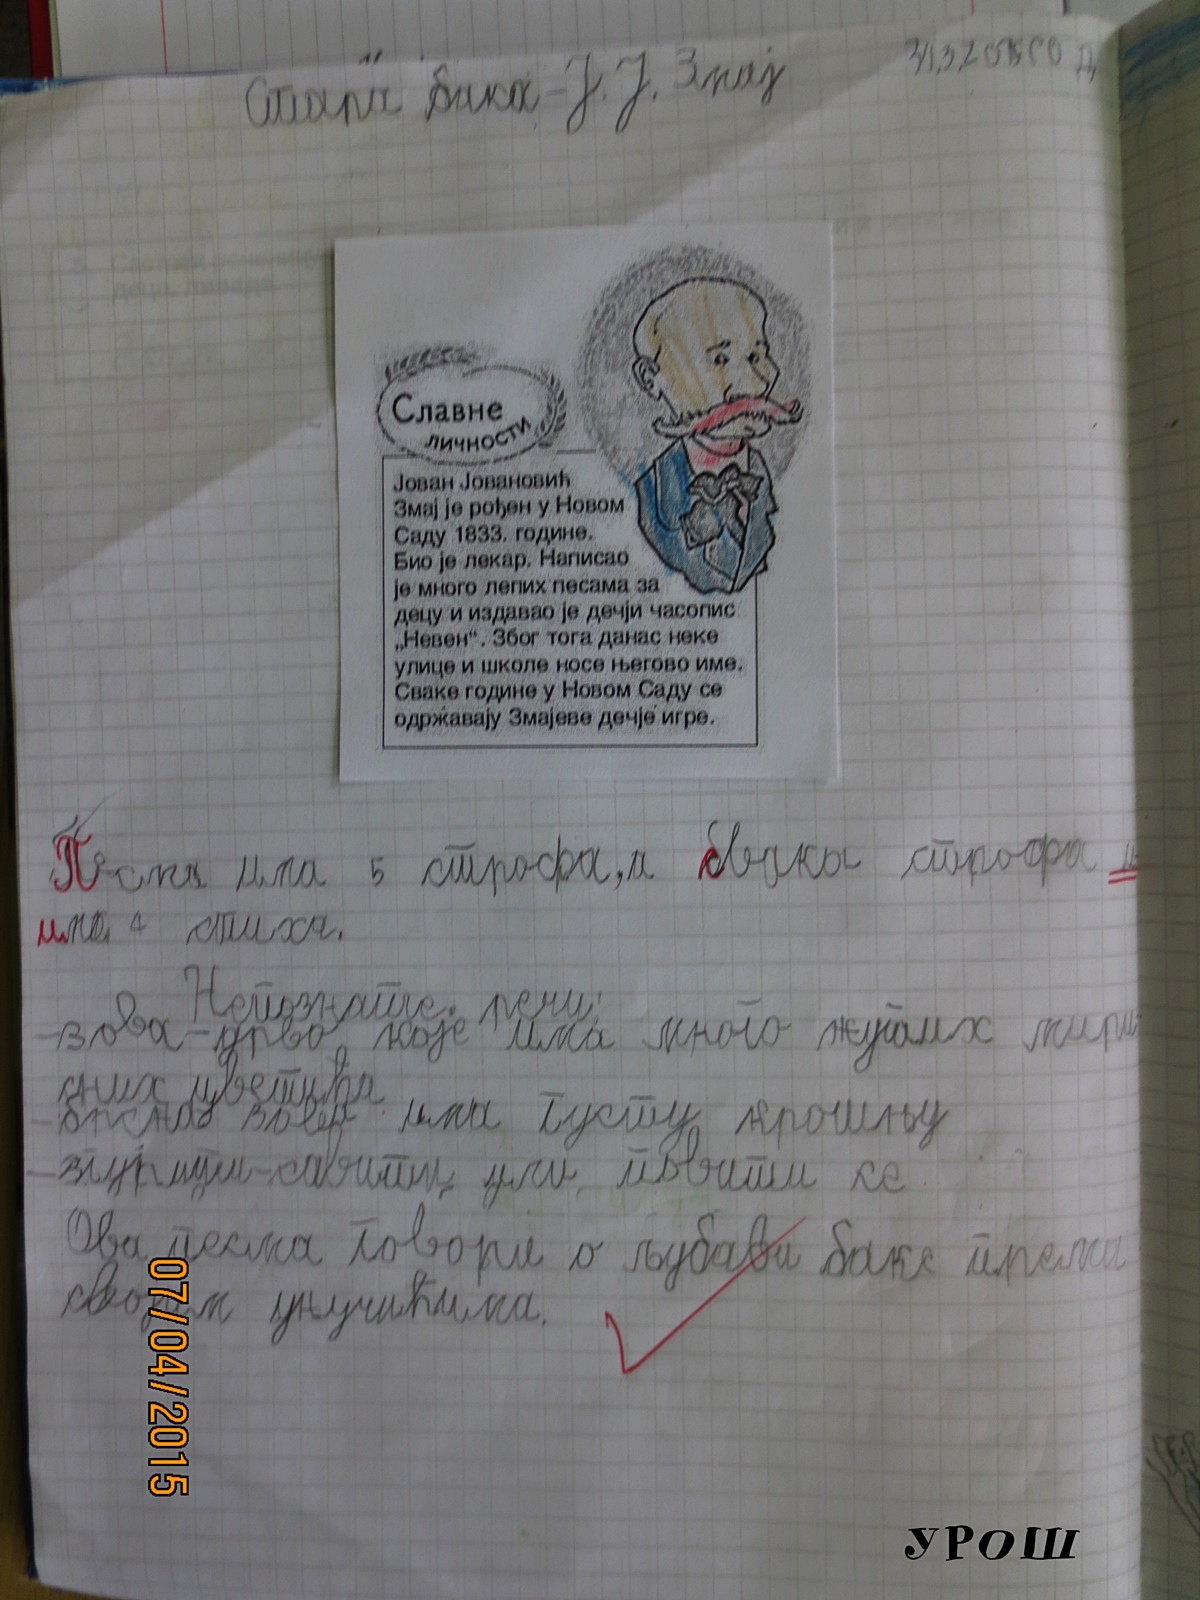 Стара бака - Ј. Ј. Змај
Славне
личности
Јован Јовановић
Змај је рођен у Новом
Саду 1833. године.
Био је лекар. Написао
је много лепих песама за
децу и издавао је дечји часопис
„Невен“. Због тога данас неке
улице и школе носе његово име.
Сваке године у Новом Саду се
одржавају Змајеве дечје игре.
Песма има 5 строфа, и свака строфа
има 4 стиха.
Непознате речи:
-зова-дрво које има много жутих мири
сних цветића
зова има густу крошњу
савити или повити се
Ова песма говори о љубави баке према
својим унучићима.
07/04/2015
УРОШ